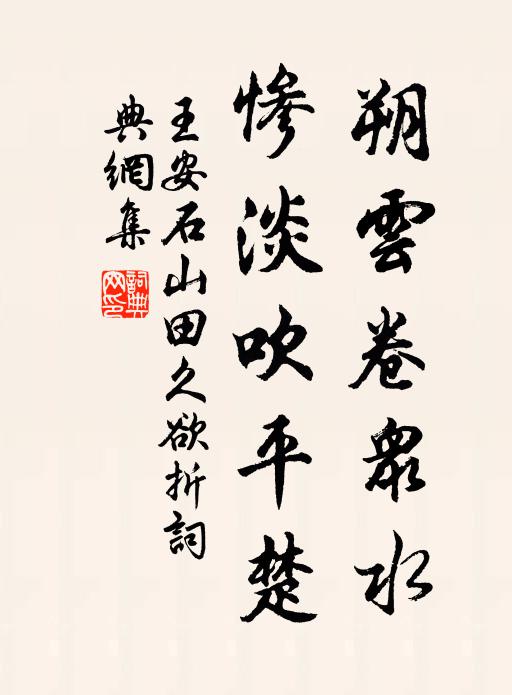 朔雲卷眾水
慘淡吹平楚
王安石山田久欲折詞
典網集
詞典
网印